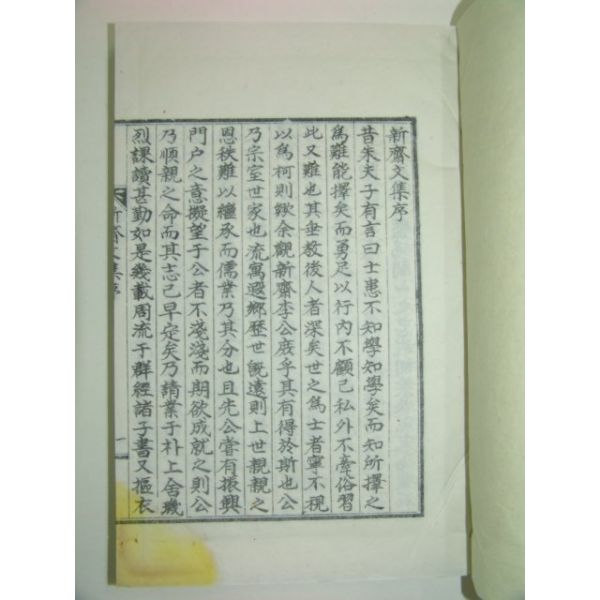 新齋文集序
昔朱夫子有言曰士患不知學知學矣而知所擇之
爲難能擇矣而勇足以行內不顧己私外不牽俗習
此又難也其垂敎後人者深矣世之爲士者寧不視
以爲柯則歟余觀新齋李公庶乎其有得於斯也公
乃宗室世家也流寓遐鄕歷世旣遠則上世親親之
恩秩難以繼承而儒業乃其分也且先公嘗有振興
門戶之意擬望于公者不淺淺而期欲成就之則公
乃順親之命而其志已早定矣乃請業于朴上舍璣
烈課讀甚勤如是幾載周流于群經諸子書又摳衣
新齋文集序
一